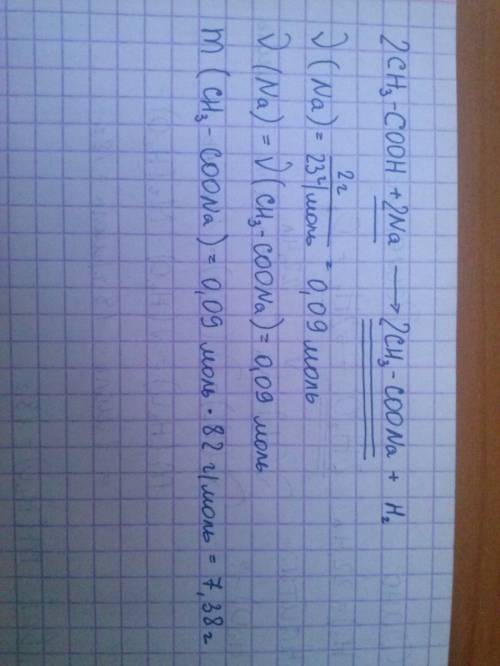 2CH₃-COOH + 2Na → 2CH₃-COONa + H₂
ν(Na) = 2г / 23 г/моль = 0,09 моль
ν(Na) = ν(CH₃-COONa) = 0,09 моль
m(CH₃-COONa) = 0,09 моль · 82 г/моль = 7,38 г